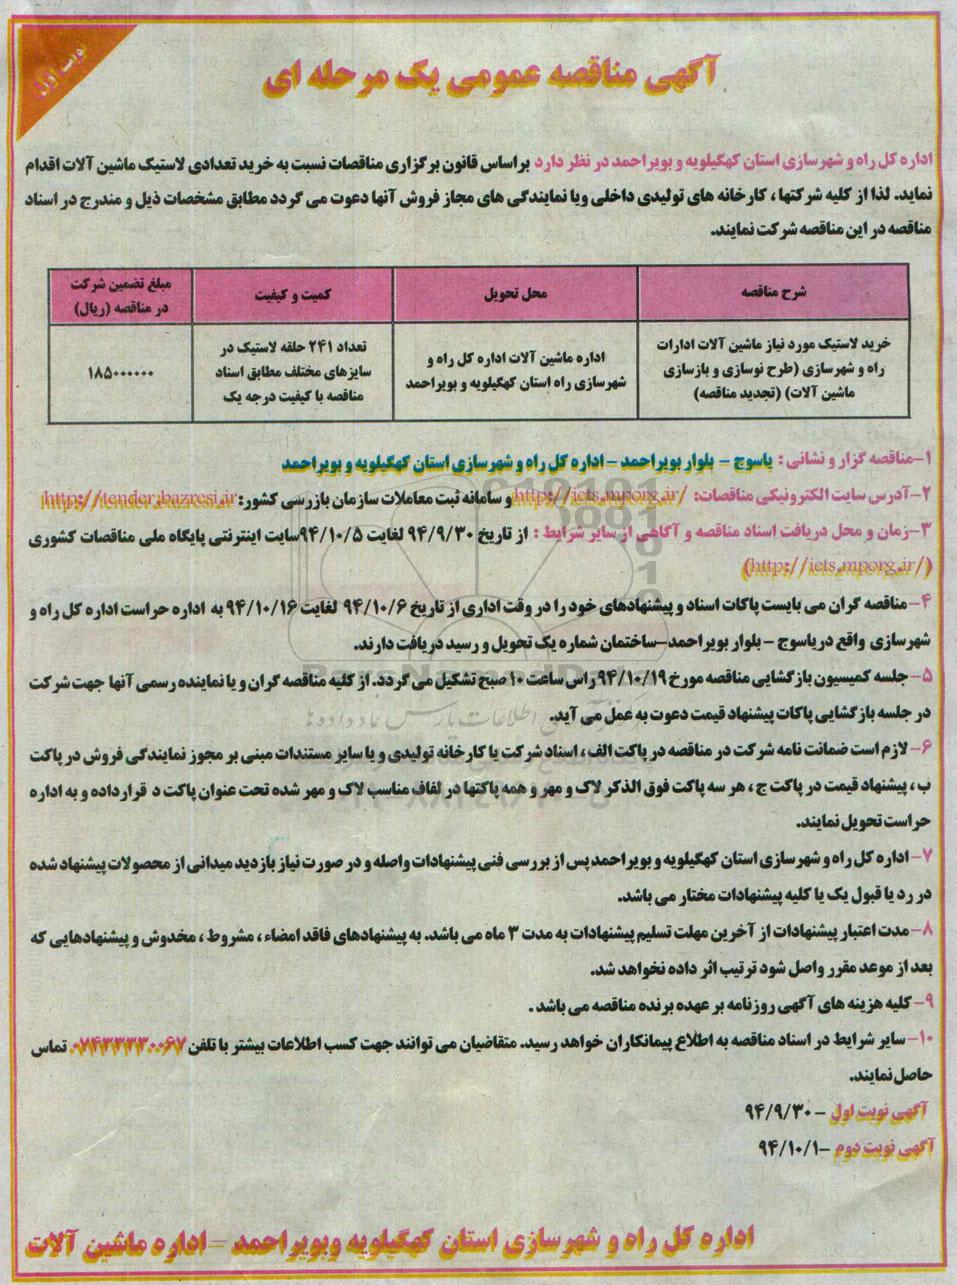 نوبت اول
آگهی مناقصه عمومی یک مرحله ای
اداره کل راه و شهرسازی استان کهگیلویه و بویراحمد در نظر دارد براساس قانون برگزاری مناقصات نسبت به خرید تعدادی لاستیک ماشین آلات اقدام
نماید. لذا از کلیه شرکتها ، کارخانه های تولیدی داخلی ویا نمایندگی های مجاز فروش آنها دعوت می گردد مطابق مشخصات ذیل و مندرج در اسناد
مناقصه در این مناقصه شرکت نمایند.
شرح مناقصه
محل تحویل
کمیت و کیفیت
مبلغ تضمین شرکت
در مناقصه (ریال)
خرید لاستیک مورد نیاز ماشین آلات ادارات
راه و شهرسازی (طرح نوسازی و بازسازی
ماشین آلات) (تجدید مناقصه)
اداره ماشین آلات اداره کل راه و
شهرسازی راه استان کهگیلویه و بویراحمد
تعداد ۲۴۱ حلقه لاستیک در
سایزهای مختلف مطابق اسناد
مناقصه با کیفیت درجه یک
۱۸۵۰۰۰۰۰۰
۱-مناقصه گزار و نشانی : یاسوج - بلوار بویراحمد - اداره کل راه و شهرسازی استان کهگیلویه و بویراحمد
۲-آدرس سایت الکترونیکی مناقصات: http://iets.mporg.ir/ و سامانه ثبت معاملات سازمان بازرسی کشور: http://tender.bazresi.ir
۳-زمان و محل دریافت اسناد مناقصه و آگاهی از سایر شرایط : از تاریخ ۹۴/۹/۳۰ لغایت ۹۴/۱۰/۵سایت اینترنتی پایگاه ملی مناقصات کشوری
(http://iets.mporg.ir/)
۴- مناقصه گران می بایست پاکات اسناد و پیشنهادهای خود را در وقت اداری از تاریخ ۹۴/۱۰/۶ لغایت ۹۴/۱۰/۱۶ به اداره حراست اداره کل راه و
شهرسازی واقع در یاسوج - بلوار بویراحمد-ساختمان شماره یک تحویل و رسید دریافت دارند.
۵- جلسه کمیسیون بازگشایی مناقصه مورخ ۹۴/۱۰/۱۹راس ساعت ۱۰ صبح تشکیل می گردد. از کلیه مناقصه گران و یا نماینده رسمی آنها جهت شرکت
در جلسه بازگشایی پاکات پیشنهاد قیمت دعوت به عمل می آید.
۶- لازم است ضمانت نامه شرکت در مناقصه در پاکت الف ، اسناد شرکت یا کارخانه تولیدی و یا سایر مستندات مبنی بر مجوز نمایندگی فروش در پاکت
ب ، پیشنهاد قیمت در پاکت ج ، هر سه پاکت فوق الذکر لاک و مهر و همه پاکتها در لفاف مناسب لاک و مهر شده تحت عنوان پاکت د قرارداده و به اداره
حراست تحویل نمایند.
۷- اداره کل راه و شهرسازی استان کهگیلویه و بویراحمد پس از بررسی فنی پیشنهادات واصله و در صورت نیاز بازدید میدانی از محصولات پیشنهاد شده
در رد یا قبول یک یا کلیه پیشنهادات مختار می باشد.
۸- مدت اعتبار پیشنهادات از آخرین مهلت تسلیم پیشنهادات به مدت ۳ ماه می باشد. به پیشنهادهای فاقد امضاء ، مشروط ، مخدوش و پیشنهادهایی که
بعد از موعد مقرر واصل شود ترتیب اثر داده نخواهد شد.
۹- کلیه هزینه های آگهی روزنامه بر عهده برنده مناقصه می باشد .
۱۰- سایر شرایط در اسناد مناقصه به اطلاع پیمانکاران خواهد رسید. متقاضیان می توانند جهت کسب اطلاعات بیشتر با تلفن ۰۷۴۳۳۳۳۰۰۶۷ تماس
حاصل نمایند.
آگهی نوبت اول - ۹۴/۹/۳۰
آگهی نوبت دوم -۹۴/۱۰/۱
اداره کل راه و شهرسازی استان کهگیلویه وبویراحمد - اداره ماشین آلات